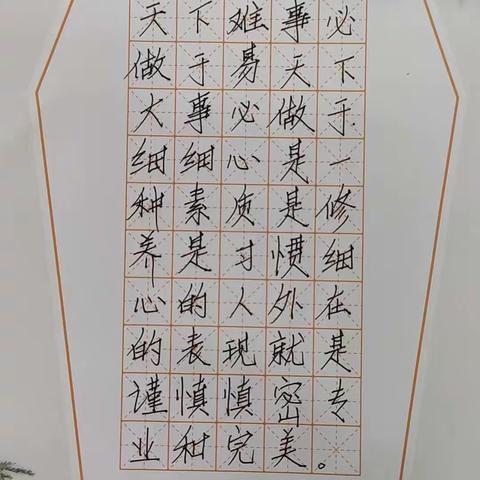 天下难事必
做于易天下
大事必做于
细细心是一
种素质是修
养是习惯细
心的人外在
的表现就是
谨慎慎密专
业和完美。